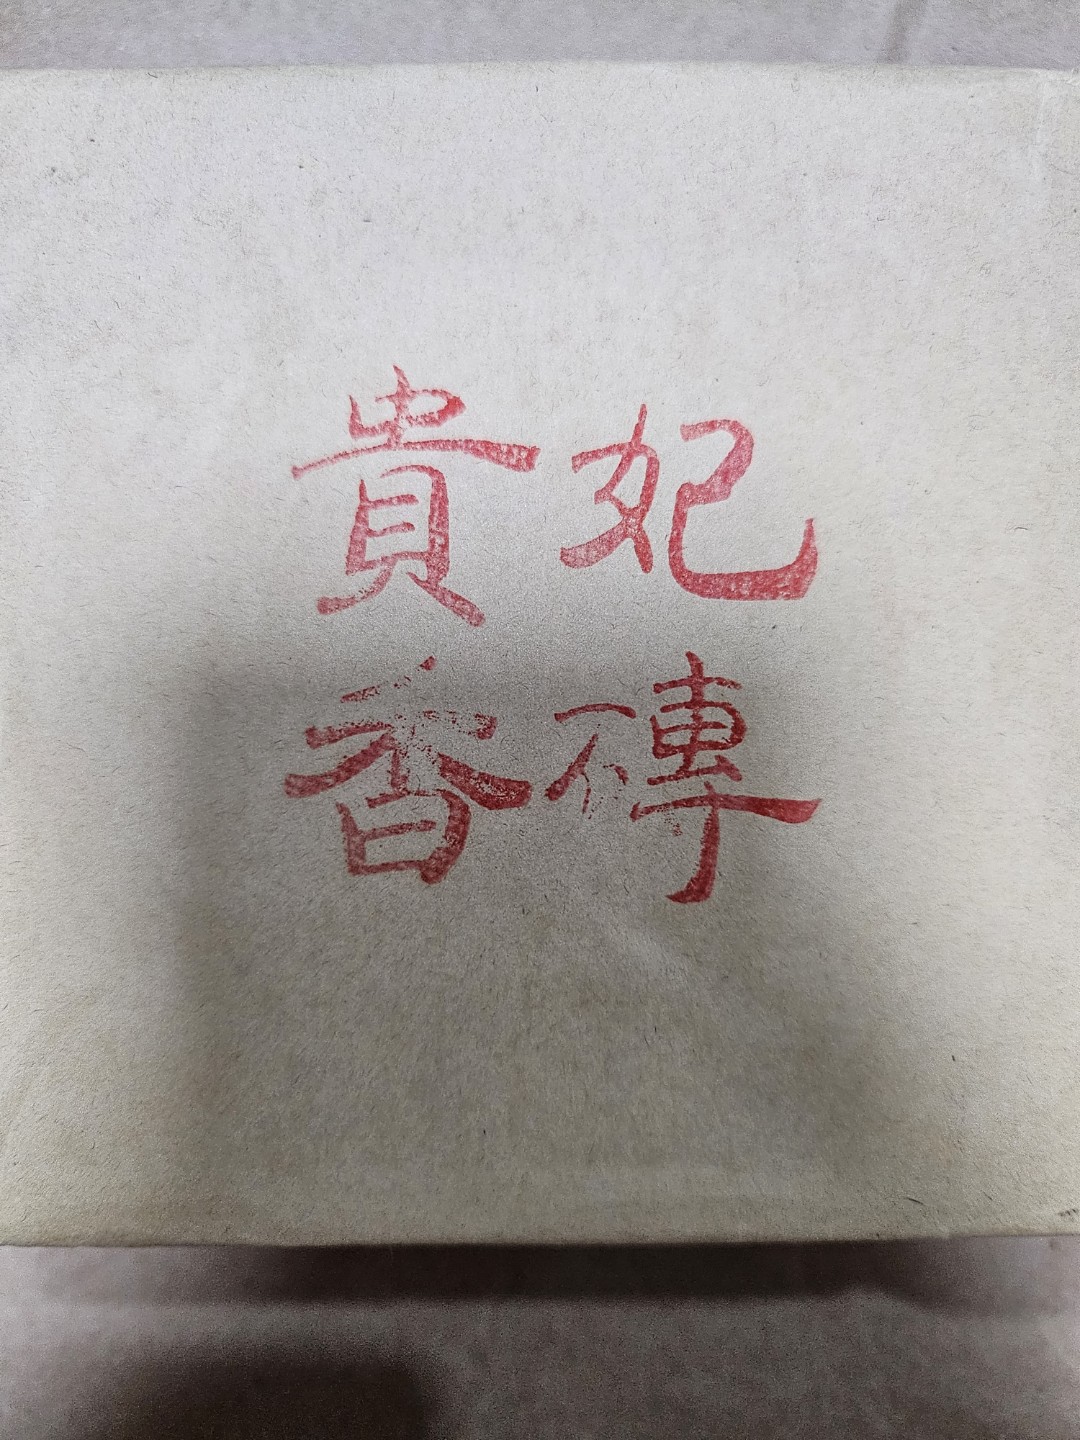 貴妃
香磚